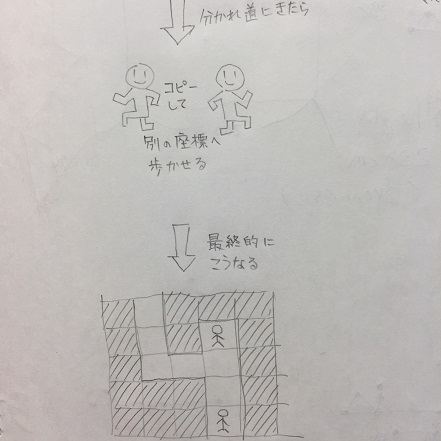 分かれ道にきたら
コピー
して
別の座標へ
歩かせる
最終的に
こうなる